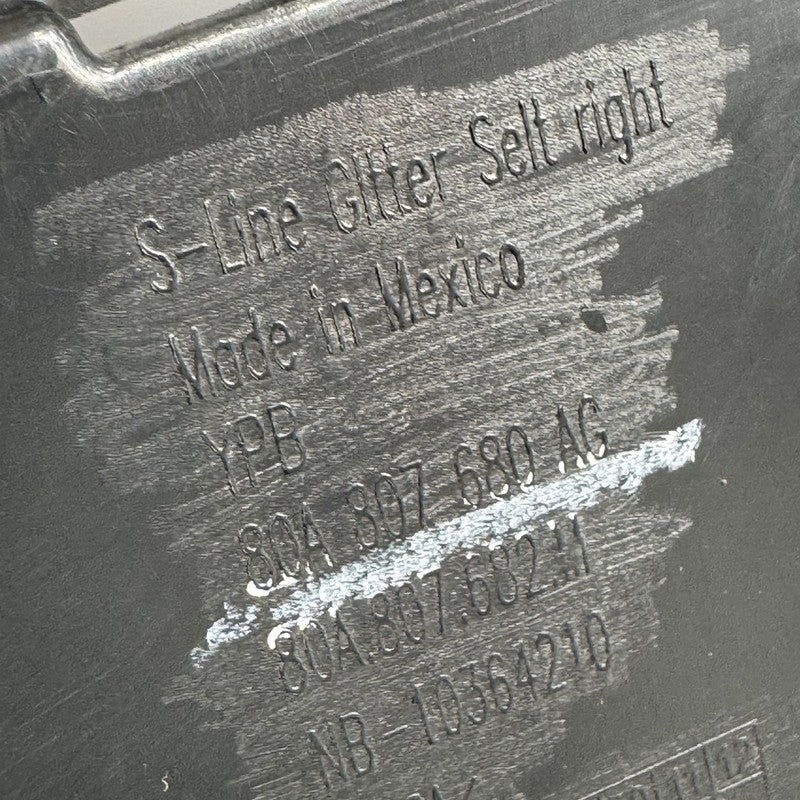 S-Line Gitter Seit right
Made in Mexico
YPB
80A 807 680 AC
80A.807.682
NB-10364210
11 12